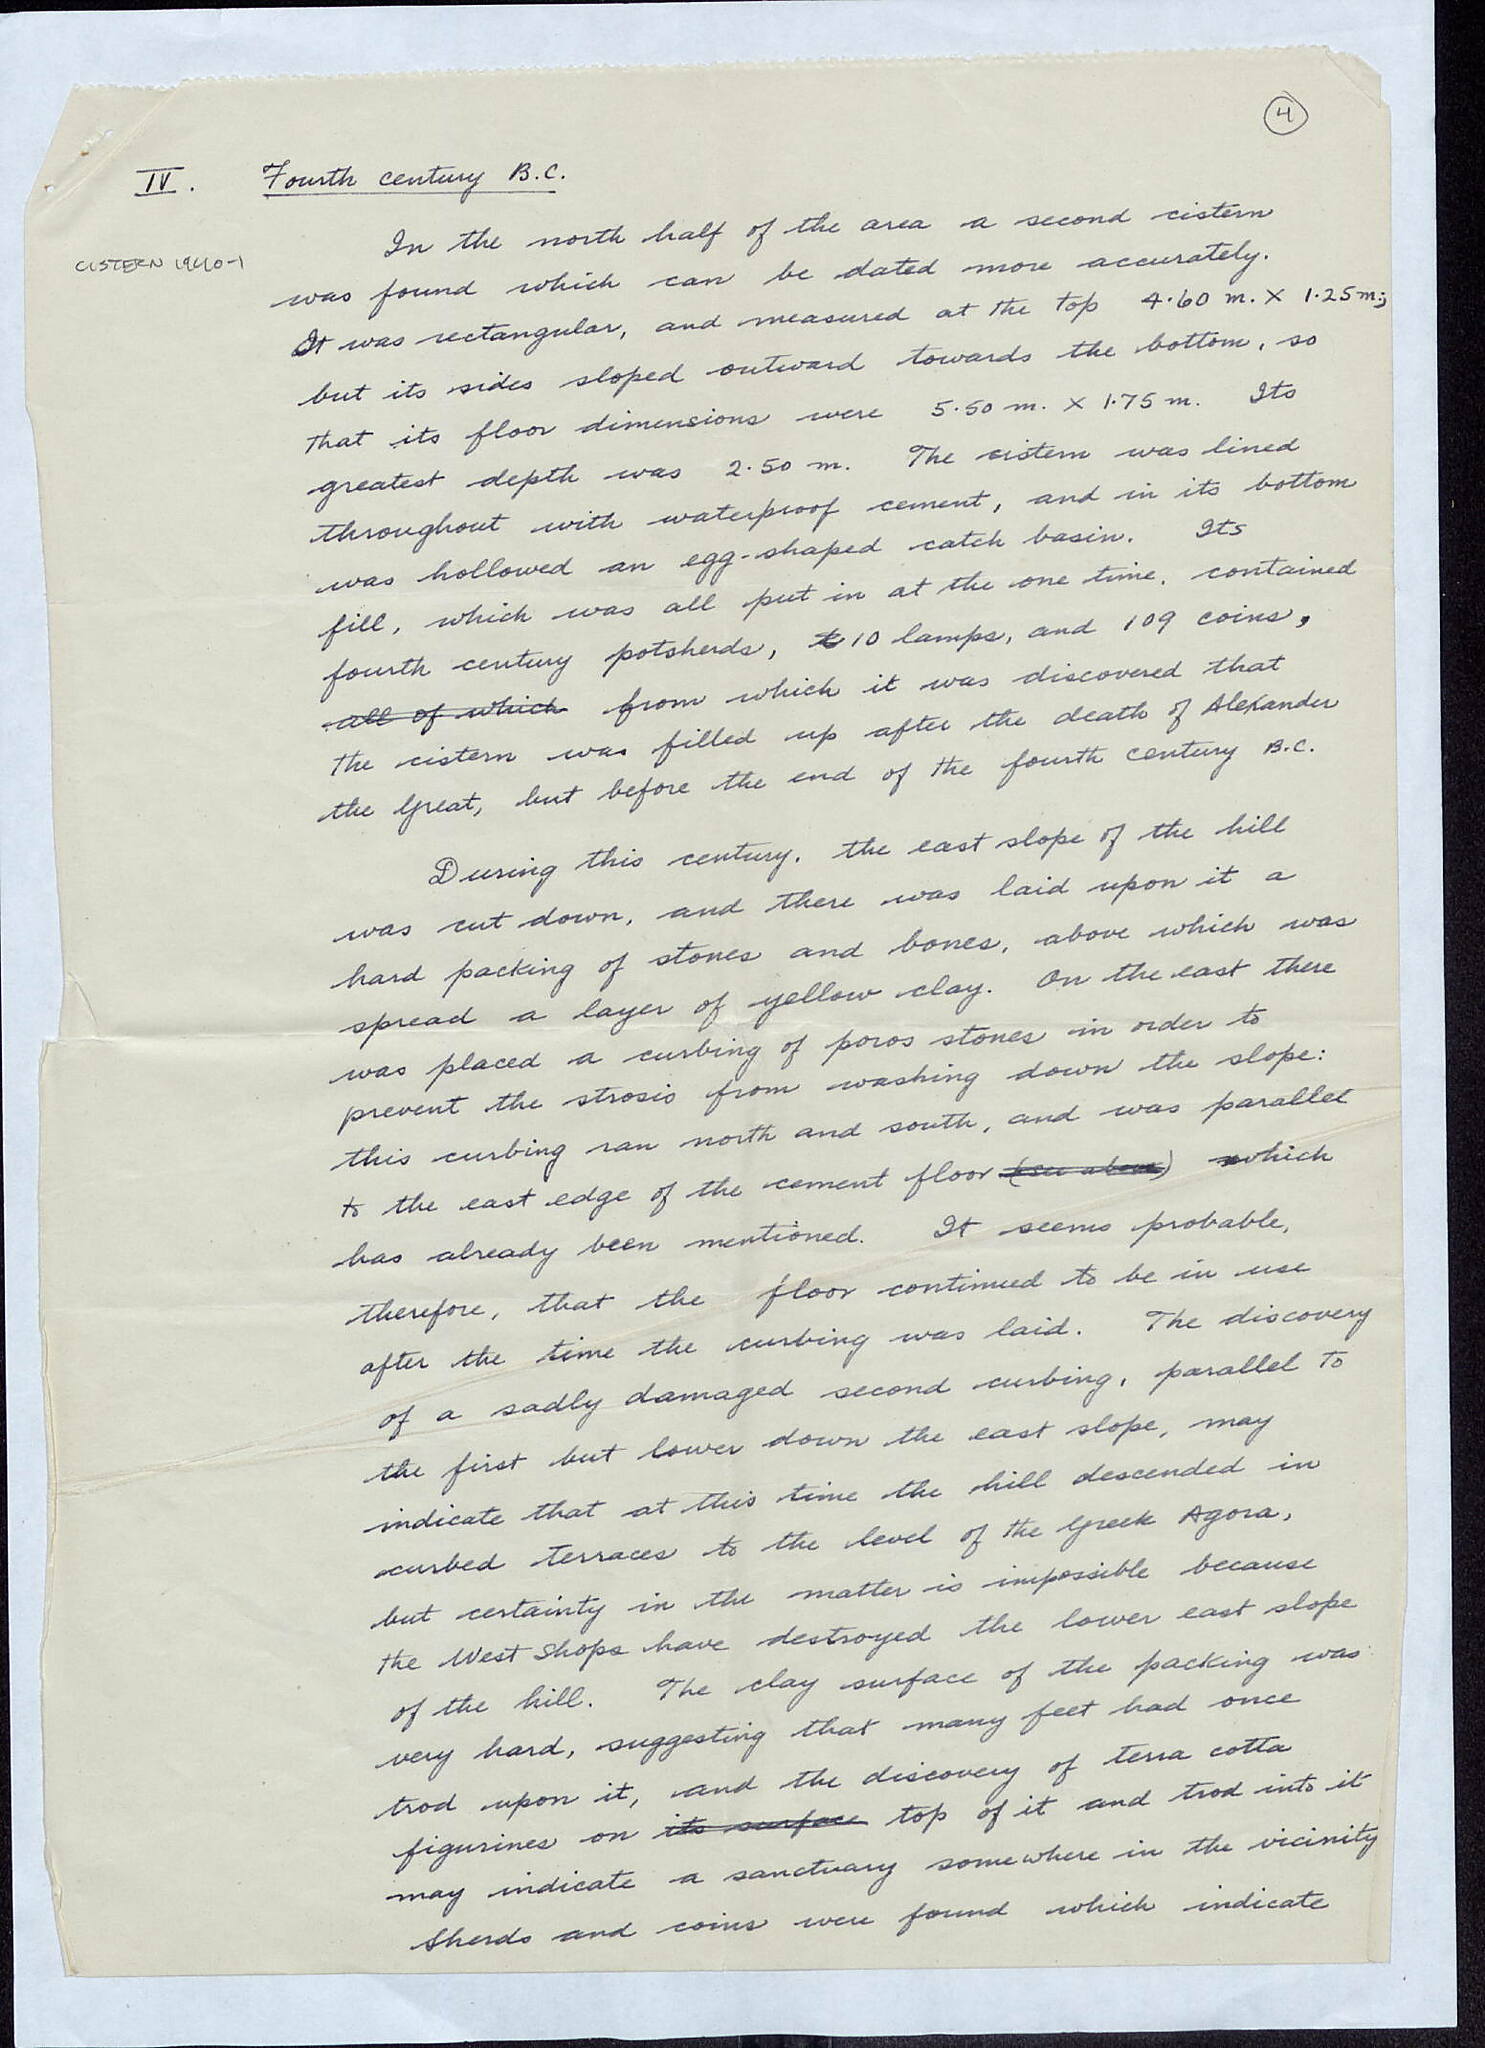 4
IV. Fourth century B.C.
In the north half of the area a second cistern
CISTERN 1940-1
was found which can be dated more accurately.
It was rectangular, and measured at the top 4.60 m. X 1.25 m;
but its sides sloped outward towards the bottom, so
that its floor dimensions were 5.50 m. X 1.75 m. Its
greatest depth was 2.50 m. The cistern was lined
throughout with waterproof cement, and in its bottom
was hollowed an egg-shaped catch basin. Its
fill, which was all put in at the one time, contained
fourth century potsherds, t 10 lamps, and 109 coins,
all of which from which it was discovered that
the cistern was filled up after the death of Alexander
the Great, but before the end of the fourth century B.C.
During this century, the east slope of the hill
was cut down, and there was laid upon it a
hard packing of stones and bones, above which was
spread a layer of yellow clay. On the east there
was placed a curbing of poros stones in order to
prevent the strosis from washing down the slope:
this curbing ran north and south, and was parallel
to the east edge of the cement floor (see above) which
has already been mentioned. It seems probable,
therefore, that the floor continued to be in use
after the time the curbing was laid. The discovery
of a sadly damaged second curbing, parallel to
the first but lower down the east slope, may
indicate that at this time the hill descended in
curbed terraces to the level of the Greek Agora,
but certainty in the matter is impossible because
the West Shops have destroyed the lower east slope
of the hill. The clay surface of the packing was
very hard, suggesting that many feet had once
trod upon it, and the discovery of terra cotta
figurines on its surface top of it and trod into it
may indicate a sanctuary somewhere in the vicinity
Sherds and coins were found which indicate